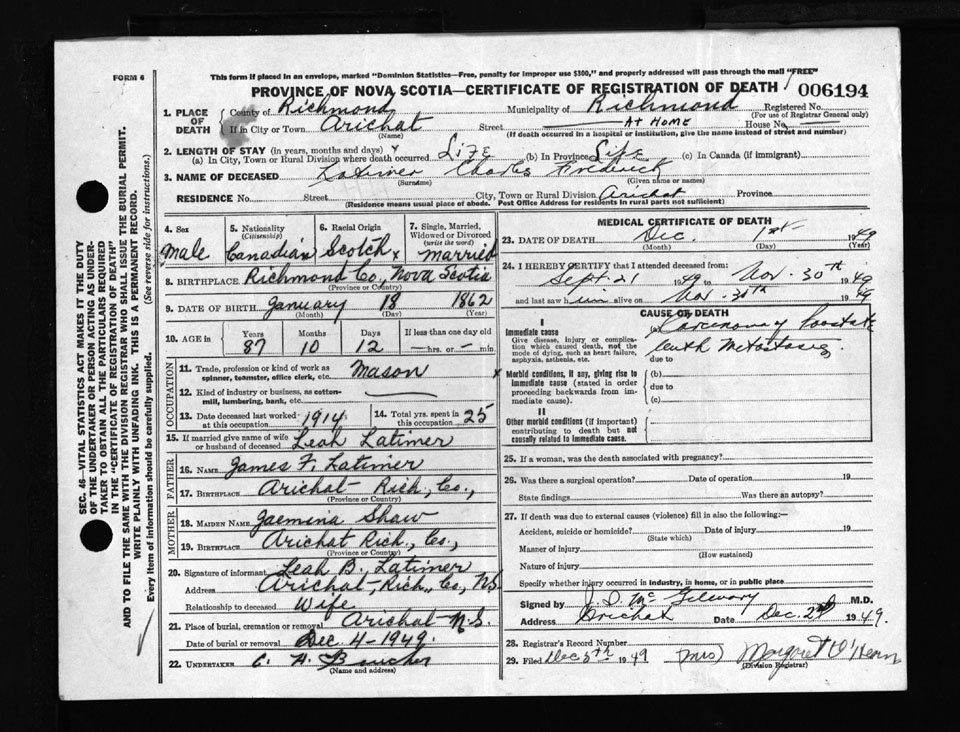 FORM 6
This form if placed in an envelope, marked "Dominion Statistics—Free, penalty for improper use $300," and properly addressed will pass through the mail "FREE"
PROVINCE OF NOVA SCOTIA—CERTIFICATE OF REGISTRATION OF DEATH
006194
1. PLACE OF DEATH
County of Richmond Municipality of Richmond Registered No.
(For use of Registrar General only)
If in City or Town Arichat Street AT HOME House No.
(Name) (If death occurred in a hospital or institution, give the name instead of street and number)
2. LENGTH OF STAY (in years, months and days)
(a) In City, Town or Rural Division where death occurred Life (b) In Province Life (c) In Canada (if immigrant)
3. NAME OF DECEASED Latimer Charles Frederick
(Surname) (Given name or names)
RESIDENCE No. Street City, Town or Rural Division Arichat Province
(Residence means usual place of abode. Post Office Address for residents in rural parts not sufficient)
4. Sex
Male
5. Nationality
(Citizenship)
Canadian
6. Racial Origin
Scotch
7. Single, Married, Widowed or Divorced
(write the word)
Married
8. BIRTHPLACE Richmond Co., Nova Scotia
(Province or Country)
9. DATE OF BIRTH January 18 1862
(Month) (Day) (Year)
10. AGE in
Years Months Days If less than one day old
87 10 12 hrs. or min.
OCCUPATION
11. Trade, profession or kind of work as spinner, teamster, office clerk, etc. Mason
12. Kind of industry or business, as cotton-mill, lumbering, bank, etc.
13. Date deceased last worked at this occupation 1914
14. Total yrs. spent in this occupation 25
15. If married give name of wife or husband of deceased Leah Latimer
FATHER
16. NAME James F. Latimer
17. BIRTHPLACE Arichat Rich., Co.,
(Province or Country)
MOTHER
18. MAIDEN NAME Jaemina Shaw
19. BIRTHPLACE Arichat Rich., Co.,
(Province or Country)
20. Signature of informant Leah B. Latimer
Address Arichat, Rich., Co., N.S.
Relationship to deceased Wife
21. Place of burial, cremation or removal Arichat N.S.
Date of burial or removal Dec 4-1949.
22. UNDERTAKER C. H.
(Name and address)
MEDICAL CERTIFICATE OF DEATH
23. DATE OF DEATH Dec. 1st 1949
(Month) (Day) (Year)
24. I HEREBY CERTIFY that I attended deceased from:
Sept. 21 1949 to Nov. 30th 1949
and last saw him alive on Nov. 30th 1949
CAUSE OF DEATH
I
Immediate cause
Give disease, injury or complication which caused death, not the mode of dying, such as heart failure, asphyxia, asthenia, etc.
(a) Carcinoma of Prostate
with Metastasis
due to
Morbid conditions, if any, giving rise to immediate cause (stated in order proceeding backwards from immediate cause).
(b)
due to
(c)
II
Other morbid conditions (if important) contributing to death but not causally related to immediate cause.
25. If a woman, was the death associated with pregnancy?
26. Was there a surgical operation? Date of operation 19
State findings Was there an autopsy?
27. If death was due to external causes (violence) fill in also the following:—
Accident, suicide or homicide? Date of injury 19
(State which)
Manner of injury
(How sustained)
Nature of injury
Specify whether injury occurred in industry, in home, or in public place
Signed by J. D. McGillvary M.D.
Address Arichat Date Dec. 2nd 1949.
28. Registrar's Record Number
29. Filed Dec 5th 1949 (Mrs) Margaret O'Hearn
(Division Registrar)
SEC. 46—VITAL STATISTICS ACT MAKES IT THE DUTY
OF THE UNDERTAKER OR PERSON ACTING AS UNDER-
TAKER TO OBTAIN ALL THE PARTICULARS REQUIRED
IN THE "CERTIFICATE OF REGISTRATION OF DEATH"
AND TO FILE THE SAME WITH THE DIVISION REGISTRAR WHO SHALL ISSUE THE BURIAL PERMIT.
WRITE PLAINLY WITH UNFADING INK. THIS IS A PERMANENT RECORD.
Every item of information should be carefully supplied. (See reverse side for instructions.)